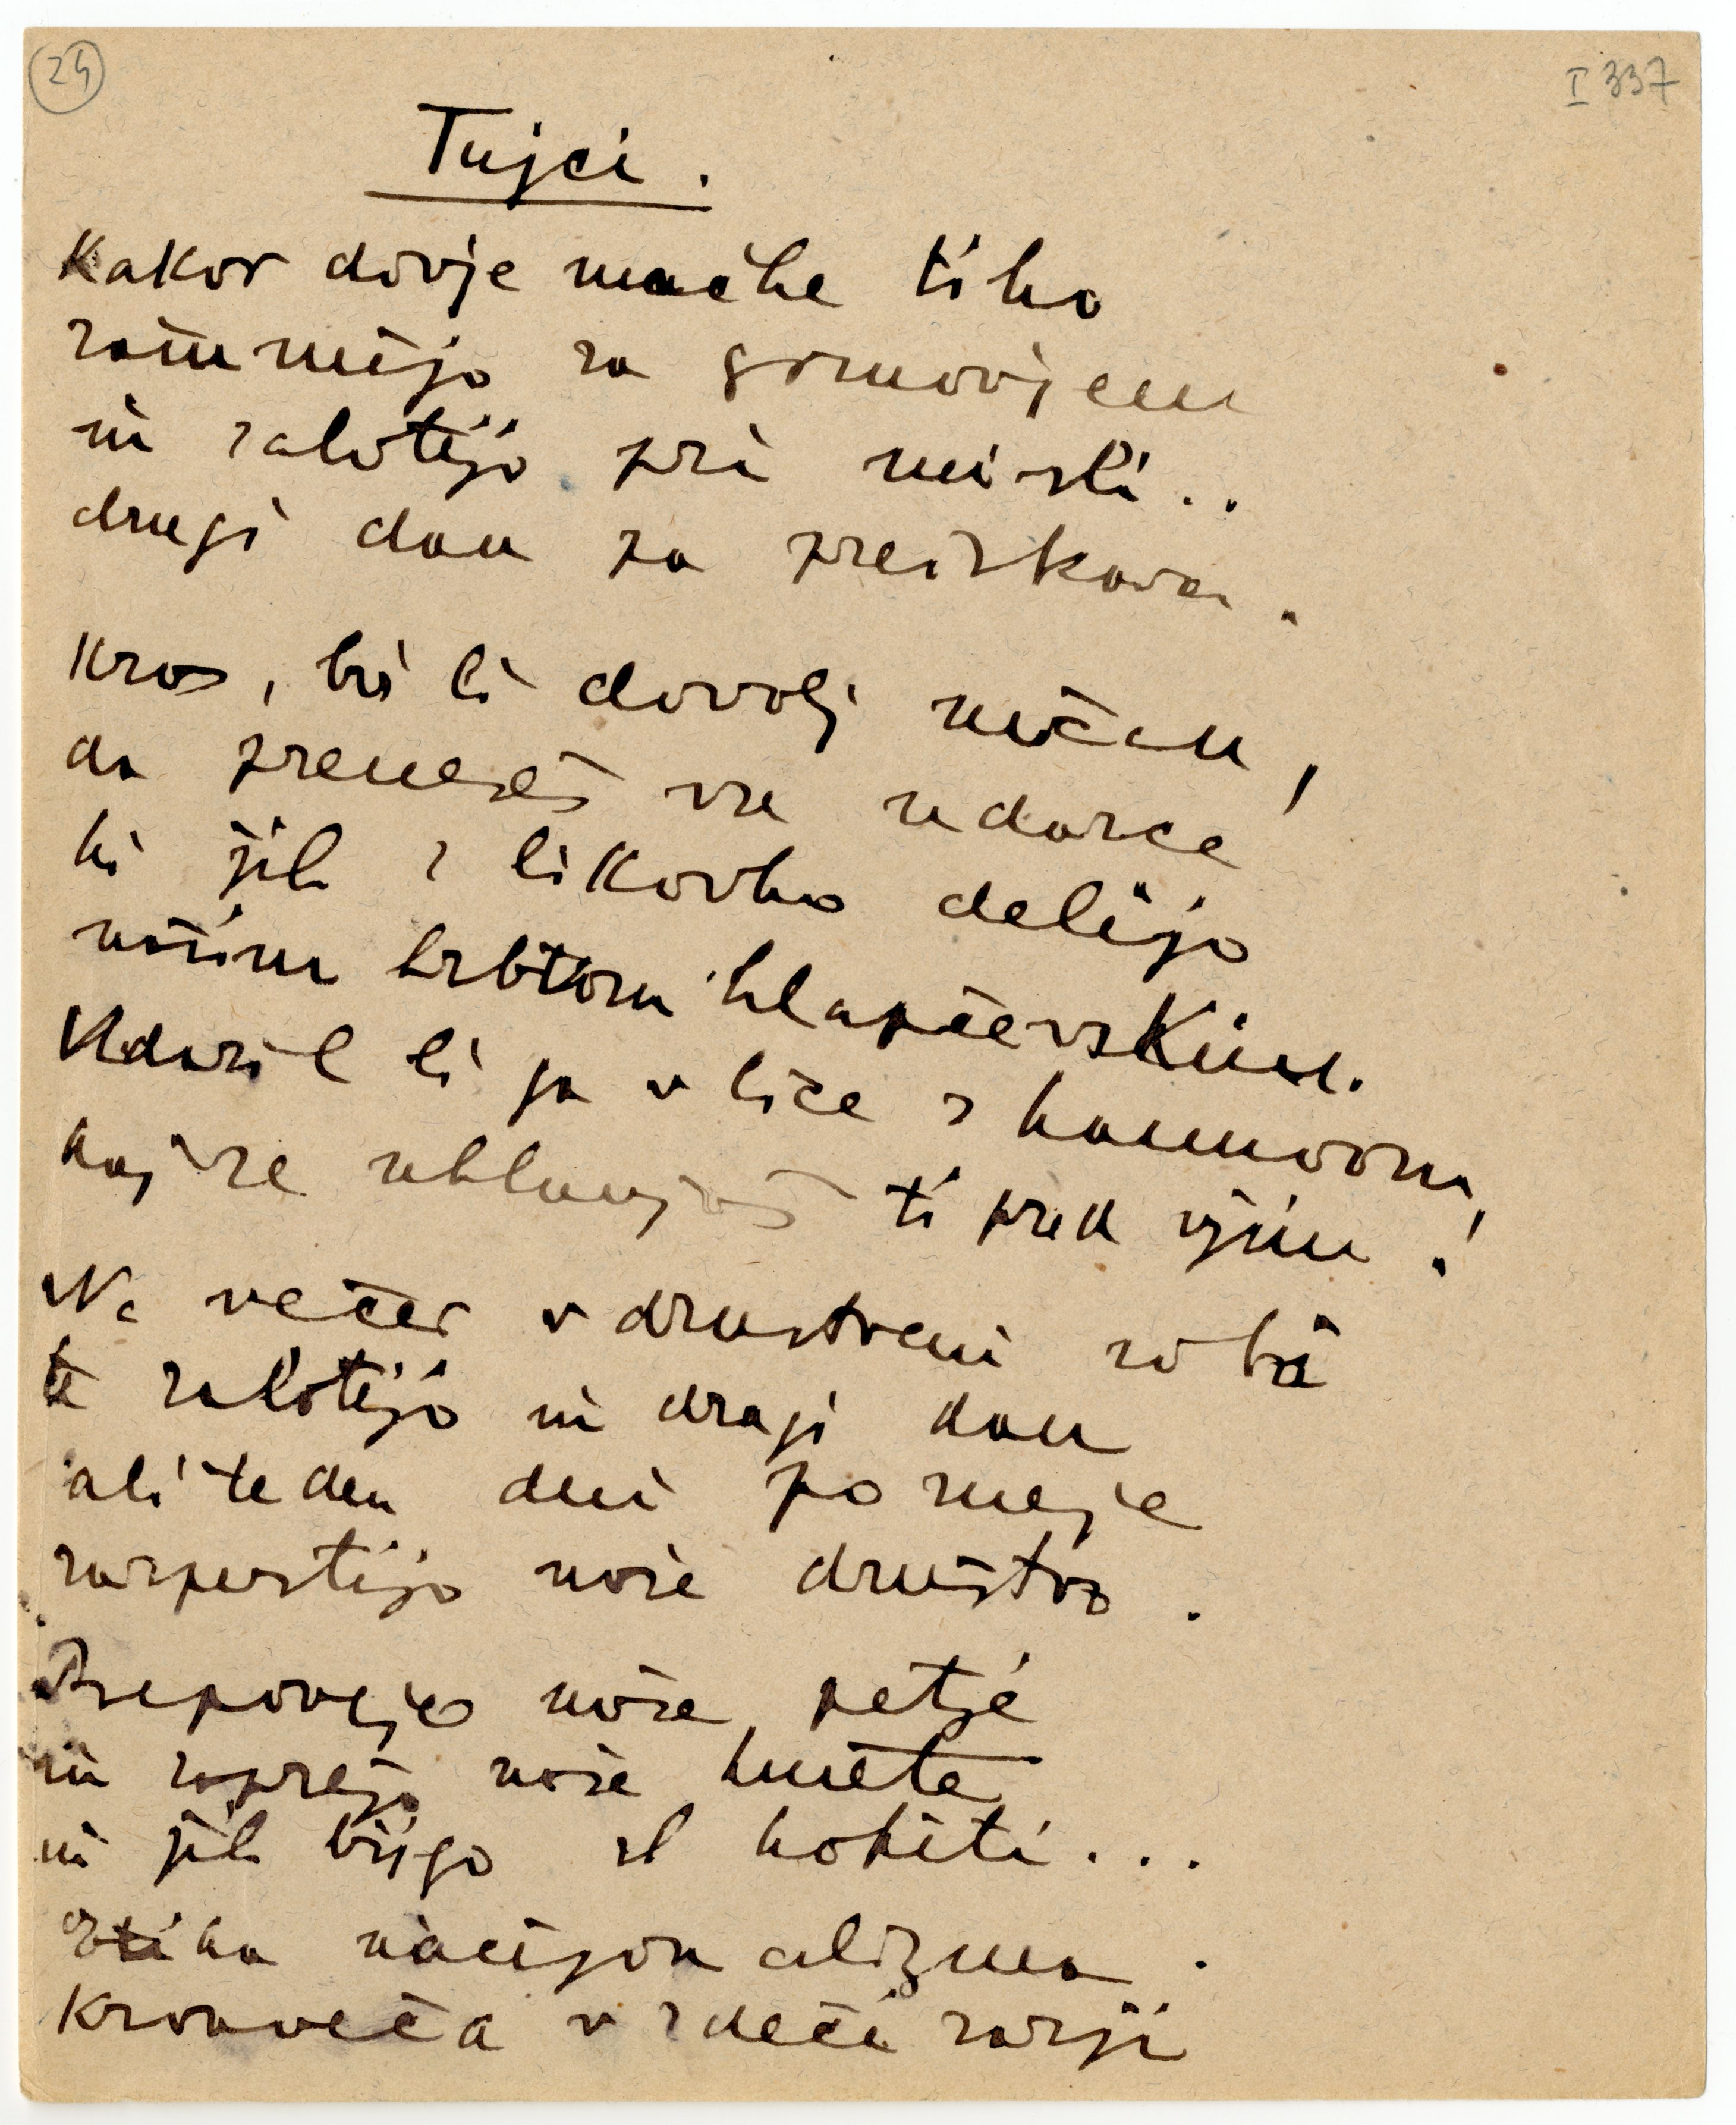 24
I 337
Tujci.
Kakor divje mačke tiho
zašumijo za grmovjem
in zalotijo pri misli..
drugi dan pa preiskava.
Kras, bi li dovolj močan,
da preneseš vse udarce
ki jih z likovko delijo
našim hrbtom hlapčevskim.
Udaril li ga v lice s kamnom,
kaj se uklanjaš ti pred njim!
Na večer v društveni sobi
te zalotijo in drugi dan
ali teden dni pozneje
razpustijo naše društvo.
Prepovejo naše petje
in zaprejo naše kmete
in jih bijejo s kopiti...
Etika nacijonalizma.
Krvaveča v rdeči zarji